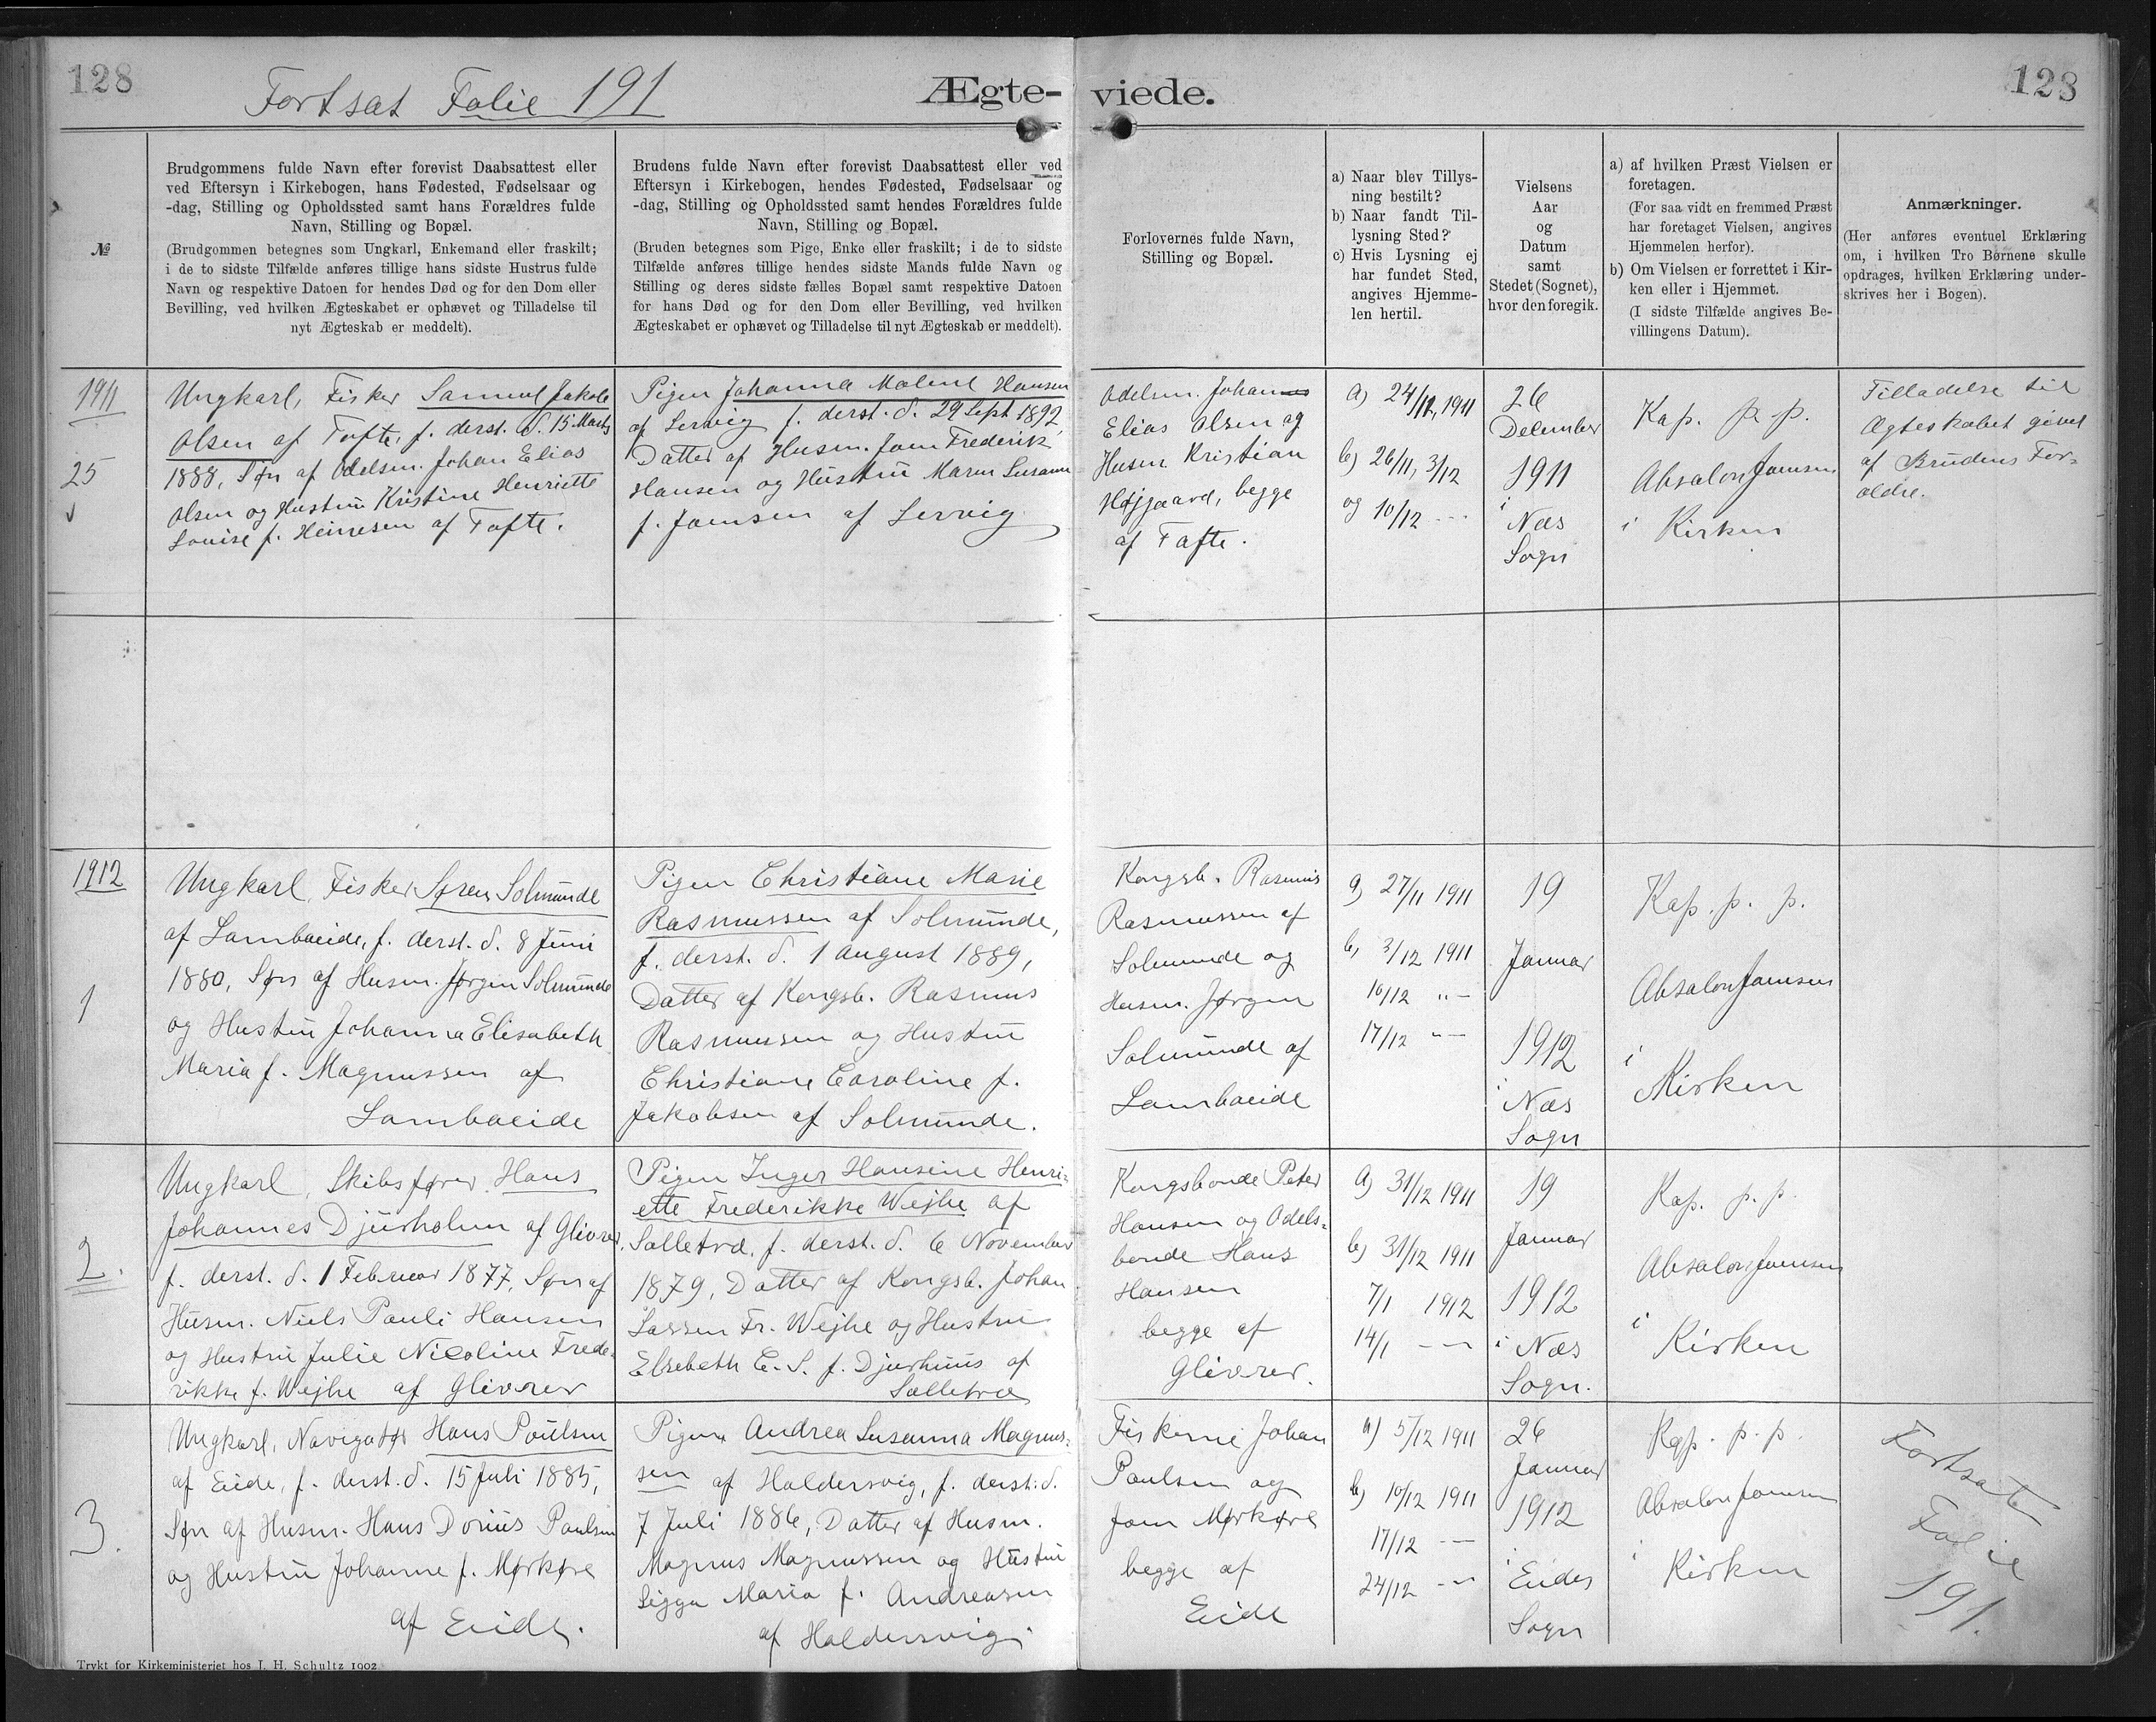 128
Fortsat Folie 191
Ægte-
viede.
128
№
Brudgommens fulde Navn efter forevist Daabsattest eller
ved Eftersyn i Kirkebogen, hans Fødested, Fødselsaar og
-dag, Stilling og Opholdssted samt hans Forældres fulde
Navn, Stilling og Bopæl.
(Brudgommen betegnes som Ungkarl, Enkemand eller fraskilt;
i de to sidste Tilfælde anføres tillige hans sidste Hustrus fulde
Navn og respektive Datoen for hendes Død og for den Dom eller
Bevilling, ved hvilken Ægteskabet er ophævet og Tilladelse til
nyt Ægteskab er meddelt).
Brudens fulde Navn efter forevist Daabsattest eller ved
Eftersyn i Kirkebogen, hendes Fødested, Fødselsaar og
-dag, Stilling og Opholdssted samt hendes Forældres fulde
Navn, Stilling og Bopæl.
(Bruden betegnes som Pige, Enke eller fraskilt; i de to sidste
Tilfælde anføres tillige hendes sidste Mands fulde Navn og
Stilling og deres sidste fælles Bopæl samt respektive Datoen
for hans Død og for den Dom eller Bevilling, ved hvilken
Ægteskabet er ophævet og Tilladelse til nyt Ægteskab er meddelt).
Forlovernes fulde Navn,
Stilling og Bopæl.
a) Naar blev Tillys-
ning bestilt?
b) Naar fandt Til-
lysning Sted?
c) Hvis Lysning ej
har fundet Sted,
angives Hjemme-
len hertil.
Vielsens
Aar
og
Datum
samt
Stedet (Sognet),
hvor den foregik.
a) af hvilken Præst Vielsen er
foretagen.
(For saa vidt en fremmed Præst
har foretaget Vielsen, angives
Hjemmelen herfor).
b) Om Vielsen er forrettet i Kir-
ken eller i Hjemmet.
(I sidste Tilfælde angives Be-
villingens Datum).
Anmærkninger.
(Her anføres eventuel Erklæring
om, i hvilken Tro Børnene skulle
opdrages, hvilken Erklæring under-
skrives her i Bogen).
1911
25
Ungkarl, Fisker Samuel Jakob
Olsen af Tofte, f. derst. d. 15 Marts
1888, Søn af Odelsm. Johan Elias
Olsen og Hustru Kristine Henriette
Louise f. Heinesen af Tofte.
Pigen Johanna Malene Hansen
af Servig f. derst. d. 29 Sept 1892,
Datter af Husm. Joen Frederik
Hansen og Hustru Maren Susanne
f. Joensen af Servig
Odelsm. Johannes
Elias Olsen og
Husm Kristian
Højgaard, begge
af Tofte.
a) 24/12, 1911
b) 26/11, 3/12
og 10/12 - - -
26
December
1911
i
Næs
Sogn
Kap. p. p.
Absalon Joensen
i Kirken
Tilladelse til
Ægteskabet givet
af Brudens For-
ældre.
1912
1
Ungkarl, Fisker Søren Solmunde
af Lambaeide, f. derst. d. 8 Juni
1880, Søn af Husm. Jørgen Solmunde
og Hustru Johanna Elisabeth
Maria f. Magnussen af
Lambaeide
Pigen Christiane Marie
Rasmussen af Solmunde,
f. derst. d. 1 August 1889,
Datter af Kongsb. Rasmus
Rasmussen og Hustru
Christiane Caroline f.
Jakobsen af Solmunde.
Kongsb. Rasmus
Rasmussen af
Solmunde og
Husm. Jørgen
Solmunde af
Lambaeide
a) 27/11 1911
b) 3/12 1911
10/12 " -
17/12 " -
19
Januar
1912
i
Næs
Sogn
Kap. p. p.
Absalon Joensen
i
Kirken
2.
Ungkarl, Skibsfører Hans
Johannes Djurholm af Glivrer,
f. derst. d. 1 Februar 1877, Søn af
Husm. Niels Pauli Hansen
og Hustru Julie Nicoline Frede-
rikke f. Wejhe af Glivrer
Pigen Inger Hansine Henri-
ette Frederikke Wejhe af
Solletrø, f. derst. d. 6 November
1879, Datter af Kongsb. Johan
Lassen Fr. Wejhe og Hustru
Elsebeth C. S. f. Djurhuus af
Solletrø
Kongsbonde Peter
Hansen og Odels-
bonde Hans
Hansen
begge af
Glivrer.
a) 31/12 1911
b) 31/12 1911
7/1 1912
14/1 - -
19
Januar
1912
i Næs
Sogn.
Kap. p. p.
Absalon Joensen
i
Kirken
3.
Ungkarl, Navigatør Hans Poulsen
af Eide, f. derst. d. 15 Juli 1885,
Søn af Husm. Hans Dorius Paulsen
og Hustru Johanne f. Mørkøre
af Eide.
Pigen Andrea Susanna Magnus-
sen af Haldersvig, f. derst. d.
7 Juli 1886, Datter af Husm.
Magnus Magnussen og Hustru
Sigga Maria f. Andreasen
af Haldersvig
Fiskerne Johan
Paulsen og
Joen Mørkøre
begge af
Eide
a) 5/12 1911
b) 10/12 1911
17/12 - -
24/12 - "
26
Januar
1912
i
Eides
Sogn
Kap. p. p.
Absalon Joensen
i
Kirken
Fortsat
Folie
191.
Trykt for Kirkeministeriet hos J. H. Schultz 1902